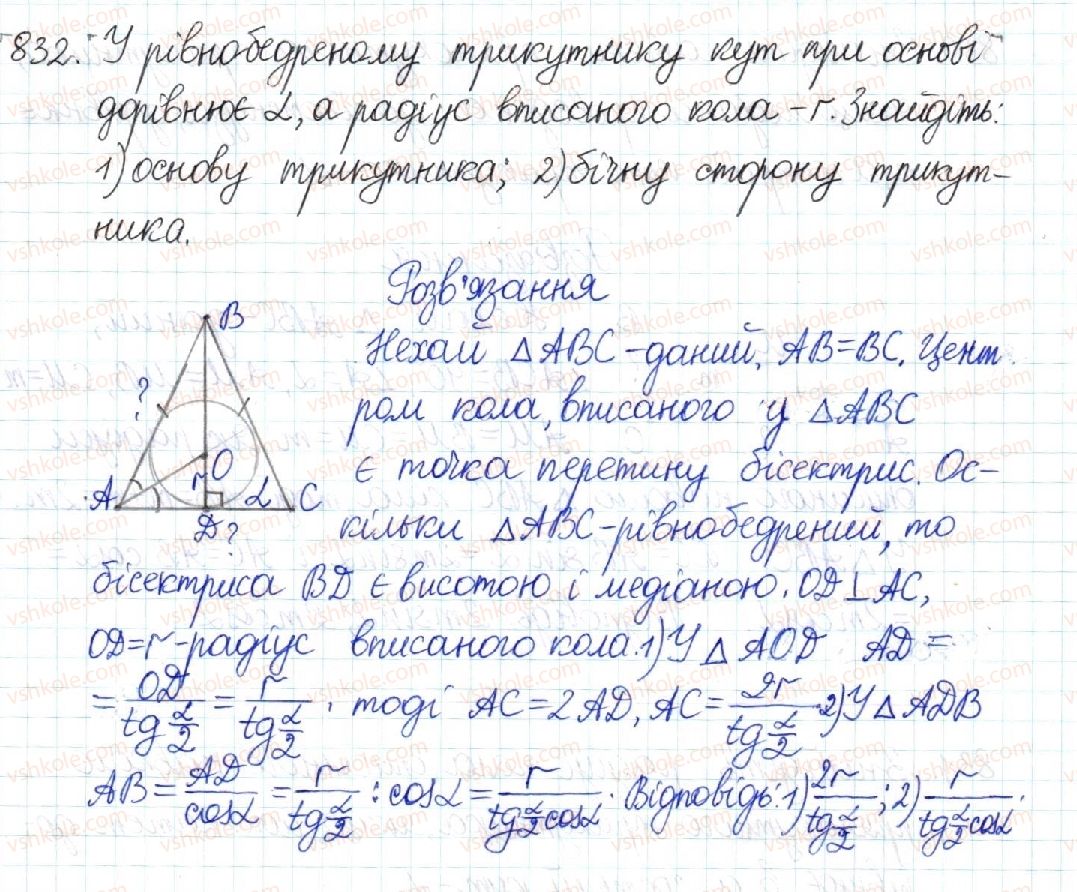 832. У рівнобедреному трикутнику кут при основі
дорівнює α, а радіус вписаного кола – r. Знайдіть:
1) основу трикутника; 2) бічну сторону трикут-
ника.
Розв'язання
B
Нехай △ABC – даний, AB=BC. Цент
?
ром кола, вписаного у △ABC
O
є точка перетину бісектрис. Ос-
A r α C
D ?
кільки △ABC – рівнобедрений, то
бісектриса BD є висотою і медіаною. OD⊥AC,
OD=r – радіус вписаного кола. 1) У △AOD AD =
= OD/tg α/2 = r/tg α/2 . тоді AC = 2AD, AC = 2r/tg α/2 2) У △ADB
AB = AD/cosα = r/tg α/2 : cosα = r/tg α/2 cosα . Відповідь: 1) 2r/tg α/2 ; 2) r/tg α/2 cosα .